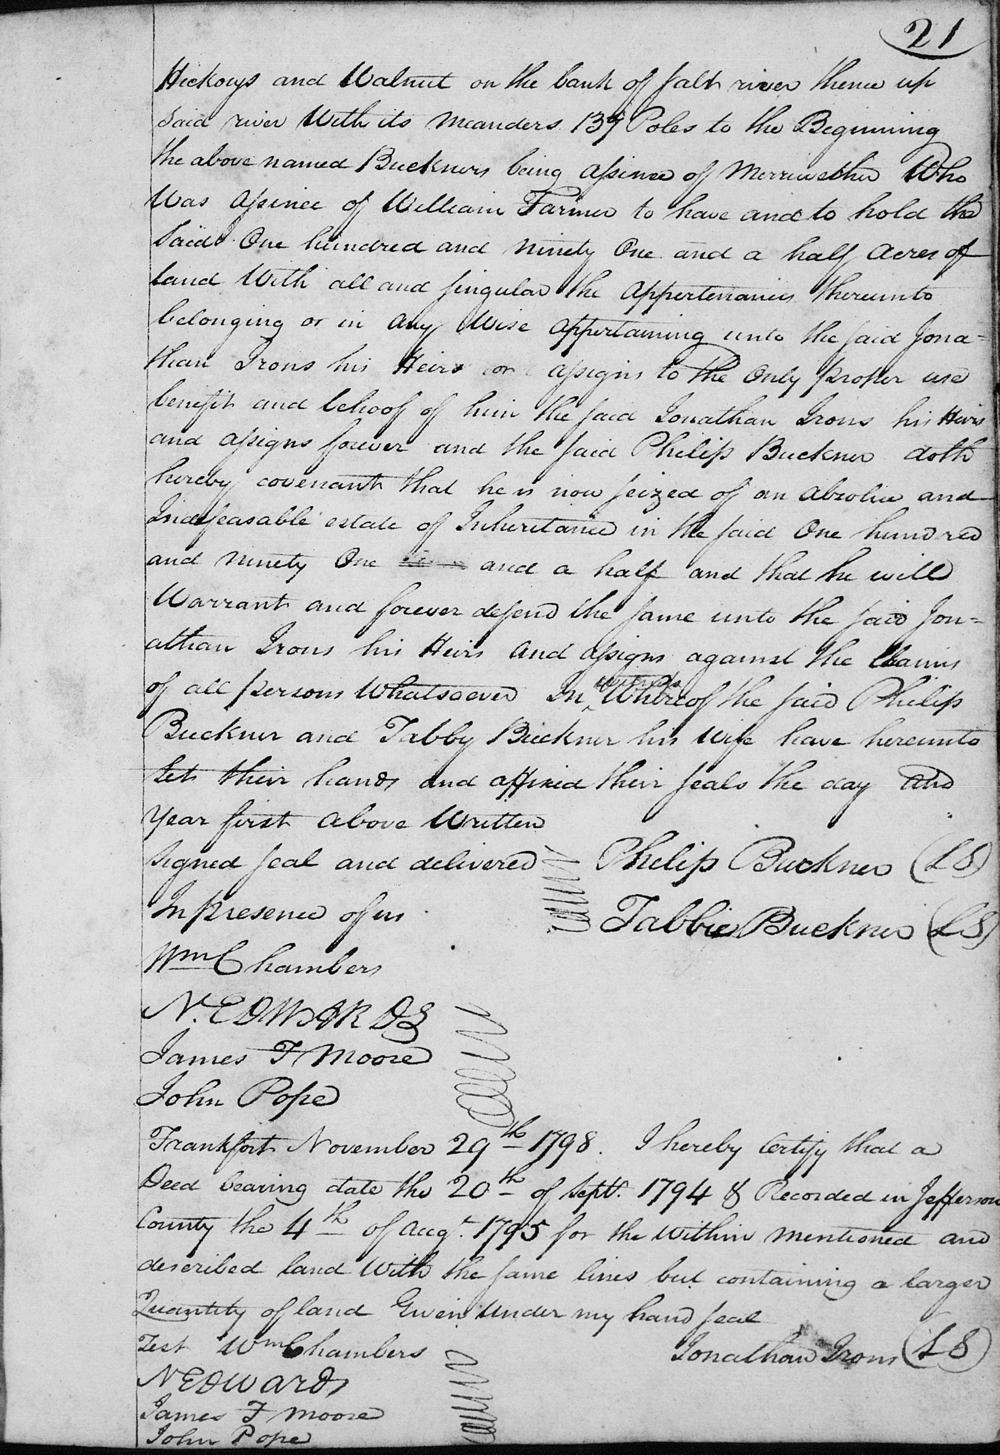 21
Hickorys and Walnut on the bank of Salt river thence up
Said river With its meanders 137 Poles to the Beginning
the above named Buckners being assinee of Merriwether Who
Was assinee of William Farmer to have and to hold the
Said One hundred and ninety One and a half Acres of
land With all and singular the appertenancies thereunto
belonging or in any Wise appertaining unto the said Jona=
than Irons his Heirs or assigns to the Only proper use
benefit and behoof of him the said Jonathan Irons his Heirs
and assigns forever and the said Philip Buckner doth
hereby covenant that he is now seized of an absolue and
Indefeasable estate of Inheritance in the said One hundred
and ninety One and a half and that he will
Warrant and forever defend the same unto the said Jon=
athan Irons his Heirs and assigns against the Claims
of all persons Whatsoever In witness Whereof the said Philip
Buckner and Tabby Buckner his Wife have hereunto
Set their hands and affixed their seals the day and
Year first above Written
Signed seal and delivered Philip Buckner (LS)
In presence of us Tabbie Buckner (LS)
Wm Chambers
N. EDWARDS
James F Moore
John Pope
Frankfort November 29th 1798. I hereby Certify that a
Deed bearing date the 20th of Sept. 1794 & Recorded in Jefferson
County the 4th of Augt. 1795 for the Within mentioned and
described land With the same lines but containing a larger
Quantity of land Given Under my hand seal
Test Wm Chambers Jonathan Irons (LS)
N EDWARDS
James F Moore
John Pope